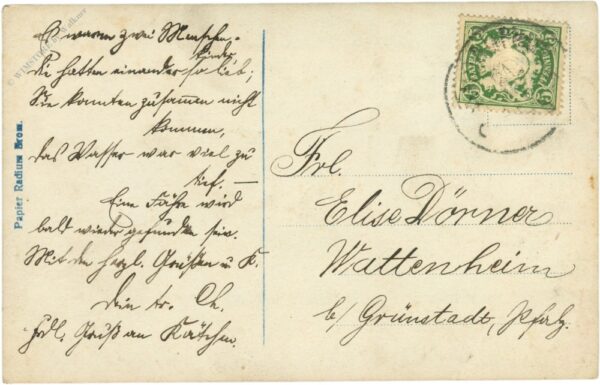 Es waren zwei Menschen-
kinder,
die hatten einander so lieb;
Sie konnten zusammen nicht
kommen,
das Wasser war viel zu
tief. —
Eine Fähre wird
bald wieder gefunden sein.
Mit den herzl. Grüßen u. K.
Dein tr. Ch.
Frdl. Gruß an Kätchen.
Papier Radium Brom.
Frl.
Elise Dörner
Wattenheim
b/ Grünstadt, Pfalz.